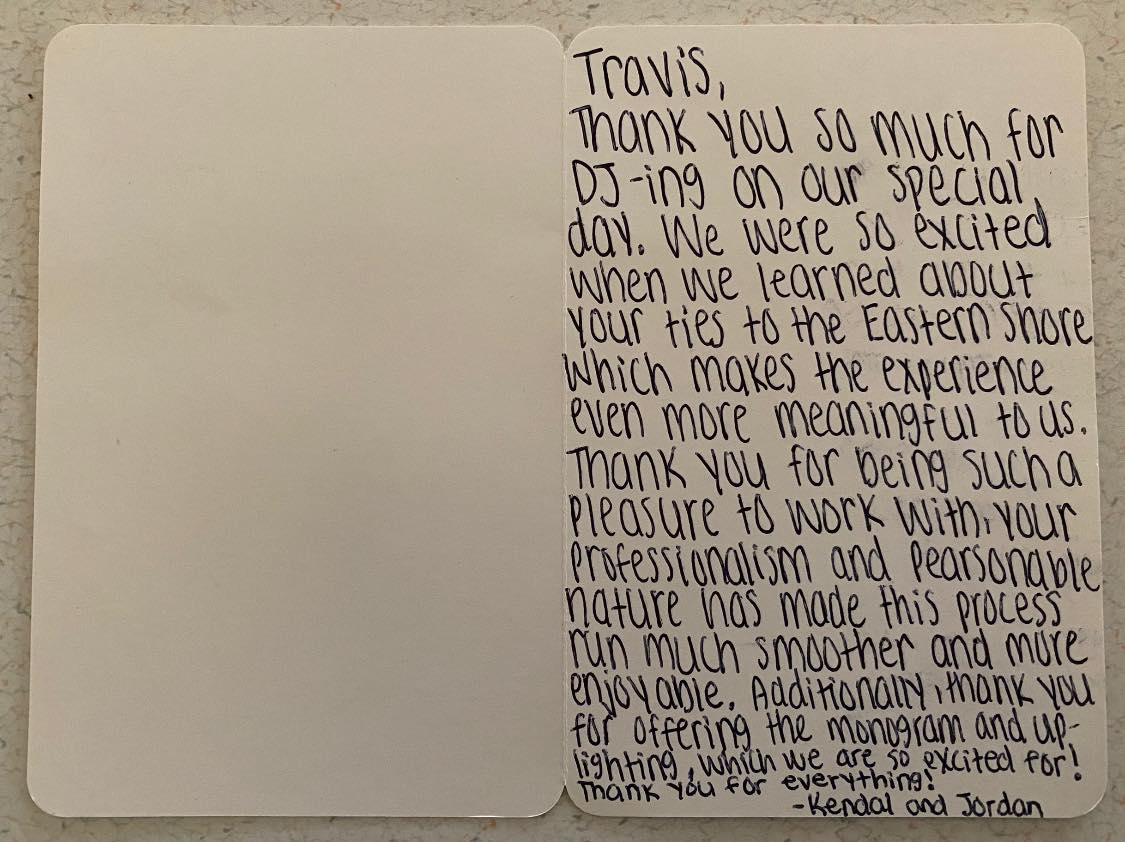 Travis,
Thank you so much for
DJ-ing on our special
day. We were so excited
when we learned about
your ties to the Eastern Shore
which makes the experience
even more meaningful to us.
Thank you for being such a
pleasure to work with, your
professionalism and pearsonable
nature has made this process
run much smoother and more
enjoyable. Additionally, thank you
for offering the monogram and up-
lighting, which we are so excited for!
Thank you for everything!
-Kendal and Jordan